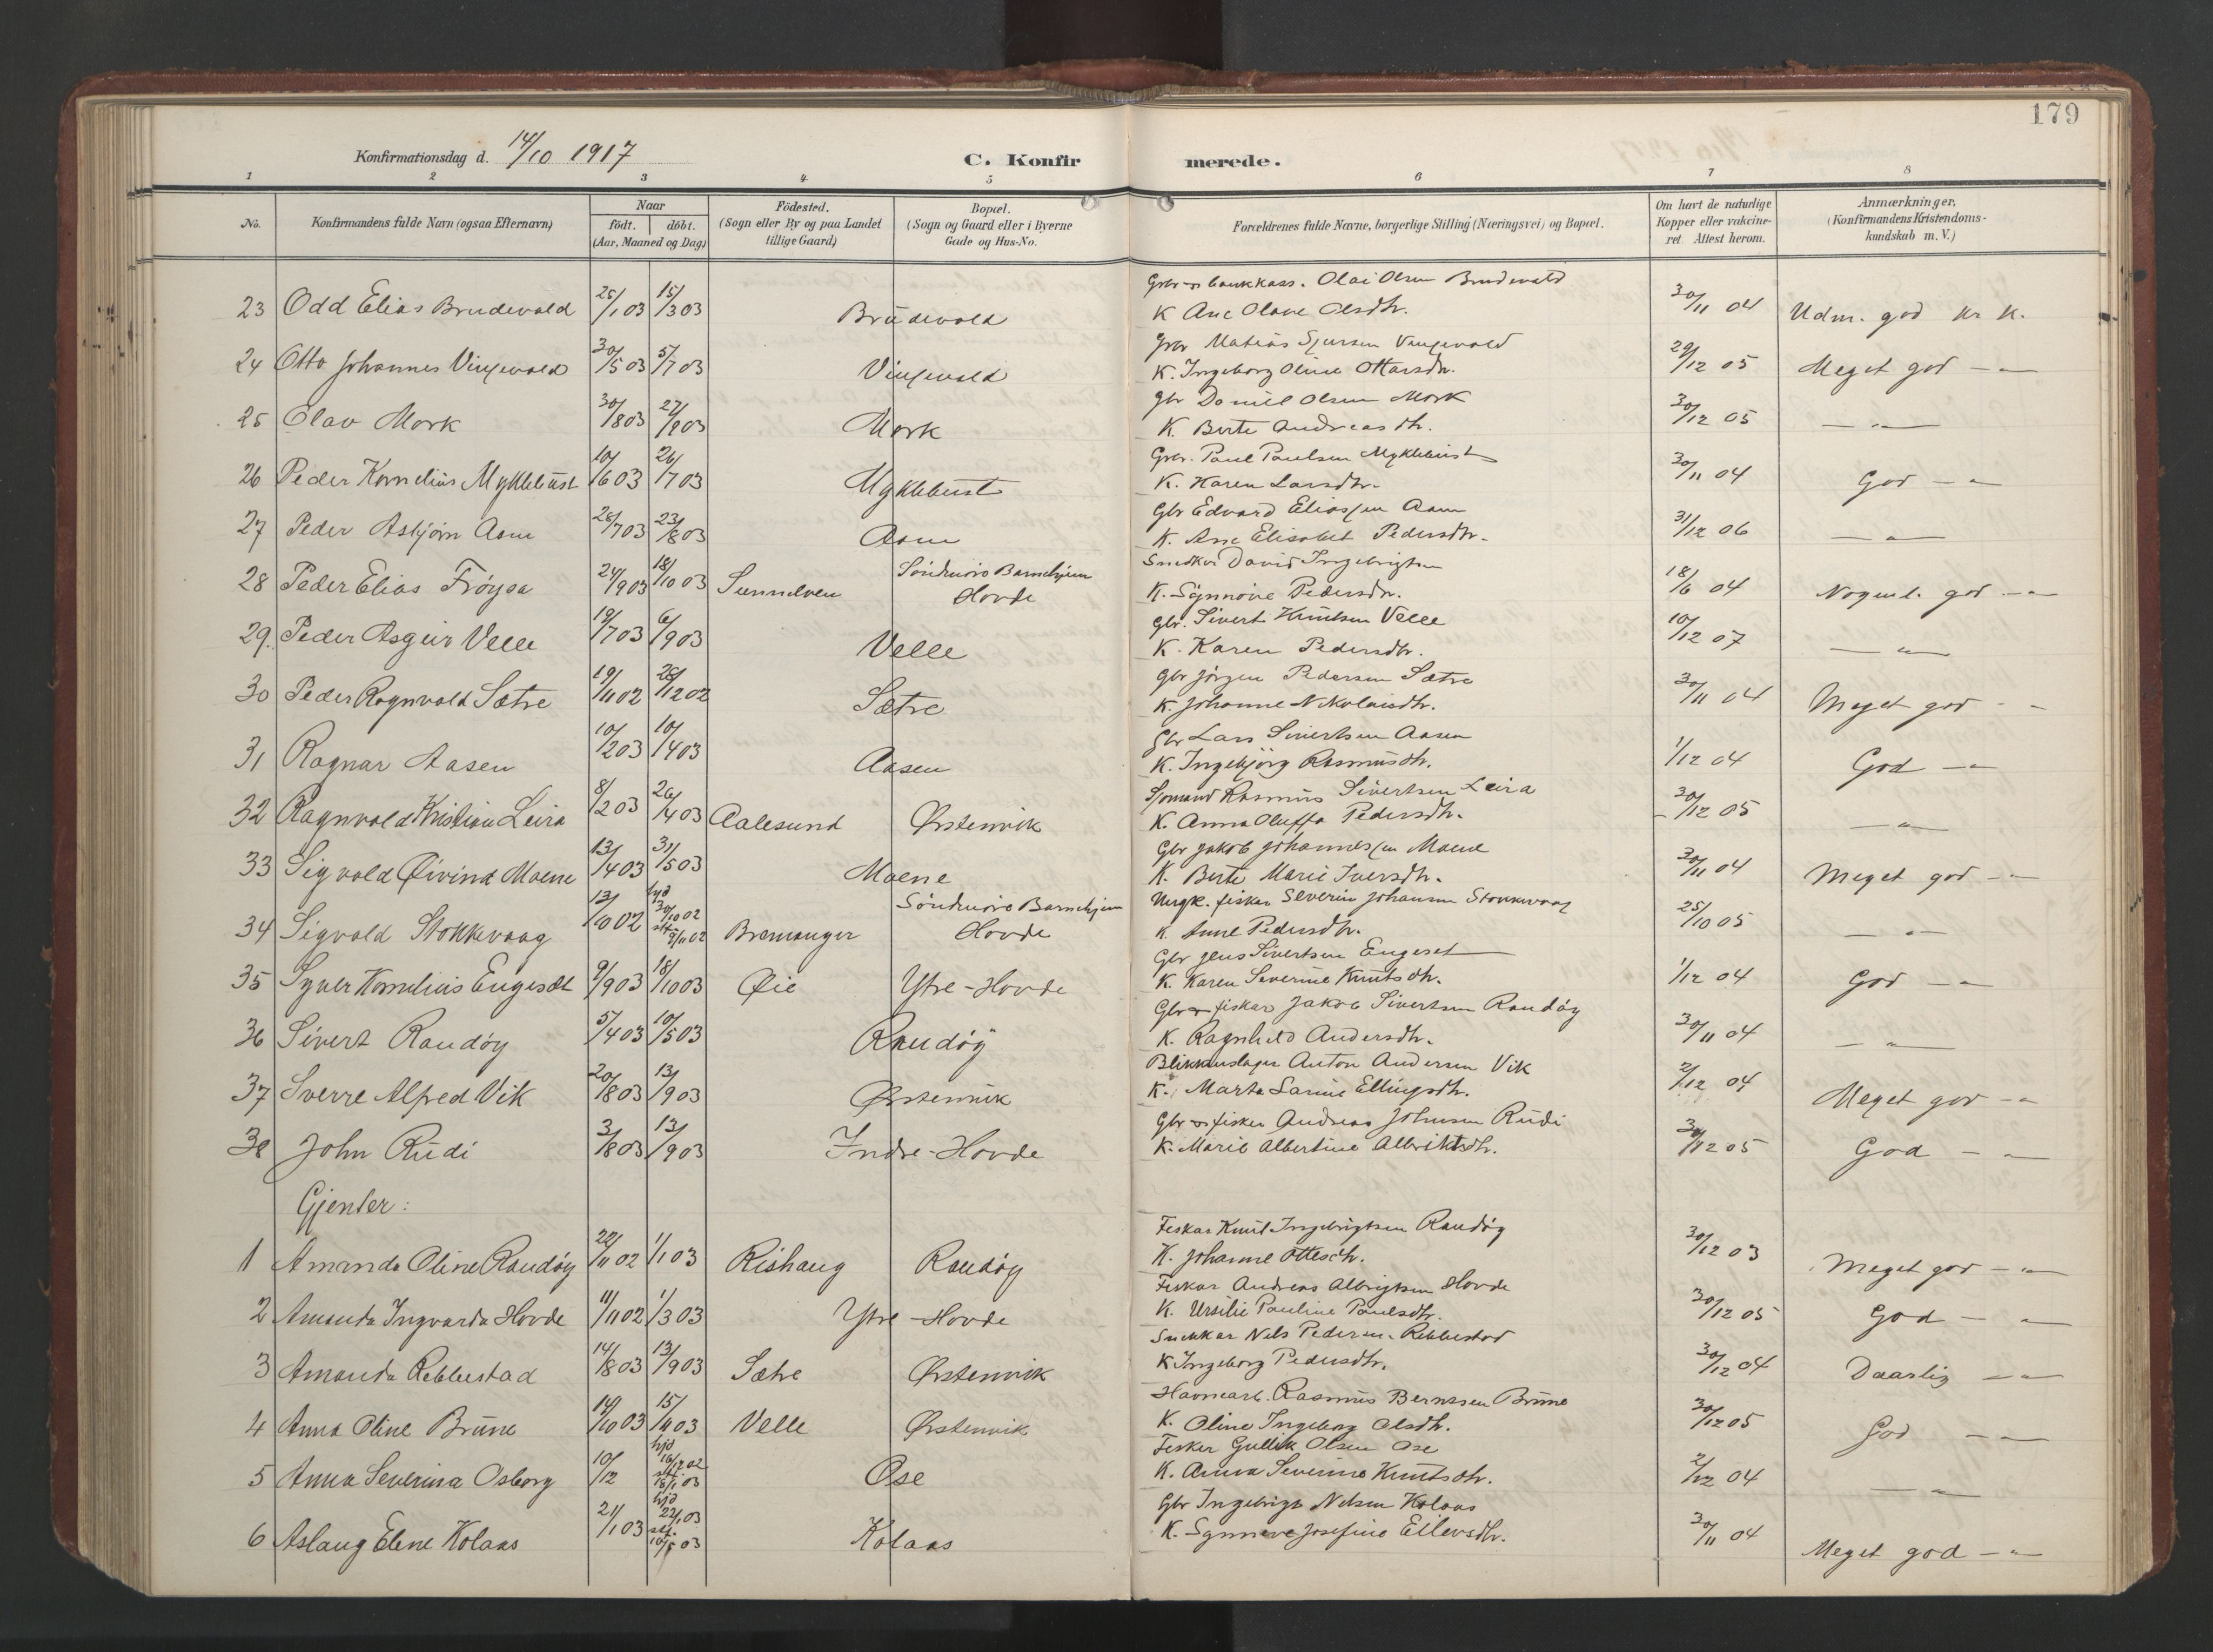 179
Konfirmationsdag d. 14/10 1917
C. Konfirmerede.
1 2 3 4 5 6 7 8
No. Konfirmandens fulde Navn (ogsaa Efternavn) Naar födt. döbt. (Aar, Maaned og Dag) Födested. (Sogn eller By og paa Landet tillige Gaard) Bopæl. (Sogn og Gaard eller i Byerne Gade og Hus-No. Forældrenes fulde Navne, borgerlige Stilling (Næringsvei) og Bopæl. Om havt de naturlige Kopper eller vakcineret Attest herom. Anmærkninger. (Konfirmandens Kristendomskundskab m. V.)
Olai Olsen Brudevold
23 Odd Elias Brudevold 25/1 03 15/3 03 Brudevold K Ane Olave Olsdtr. 30/11 04 Udm. god kr k.
Gbr Matias Sjursen Vinjevold
24 Otto Johannes Vinjevold 30/5 03 5/7 03 Vinjevold K. Ingeborg Oline Ottarsdtr. 29/12 05 Meget god — " —
Gbr Daniel Olsen Mork
25 Olav Mork 30/8 03 27/9 03 Mork K. Berte Andreasdtr. 30/12 05 — " —
Gbr. Paul Paulsen Myklebust
26 Peder Kornelius Myklebust 10/6 03 26/7 03 Myklebust K. Karen Larsdtr. 30/11 04 God — " —
Gbr Edvard Eliassen Aam
27 Peder Asbjørn Aam 28/7 03 23/8 03 Aam K. Ane Elisabet Pedersdtr. 31/12 06 — " —
Snedker David Ingebrigtsen
28 Peder Elias Frøysa 24/9 03 18/10 03 Sunnelven Söndmöre Barnehjem Hovde K. Synnøve Pedersdtr. 18/6 04 Nogenl. god — " —
Gbr. Sivert Knutsen Velle
29. Peder Asgeir Velle 19/7 03 6/9 03 Velle K. Karen Pedersdtr. 10/12 07 — " —
Gbr Jørgen Pedersen Sætre
30 Peder Ragnvald Sætre 19/11 02 28/12 02 Sætre K. Johanne Nikolaisdtr. 30/11 04 Meget god - -
Gbr Lars Sivertsen Aasen
31 Ragnar Aasen 10/2 03 10/4 03 Aasen K. Ingebjörg Rasmusdtr. 1/12 04 God — " —
Sjomand Rasmus Sivertsen Leira
32 Ragnvald Kristian Leira 8/2 03 26/4 03 Aalesund Ørstenvik K. Anna Oluffa Pedersdtr. 30/12 05 — " —
Gbr Jakob Johannessen Moene
33 Sigvald Øivind Moene 13/4 03 31/5 03 Moene K. Berte Marie Iversdtr. 30/11 04 Meget god — " —
Ungk. fisker Severin Johansen Stokkevaag
34 Sigvald Stokkevaag 13/10 02 hjd 30/10 02 stf. 9/11 02 Bremanger Söndmöre Barnehjem Hovde K. Anne Pedersdtr. 25/10 05 — " —
Gbr Jens Sivertsen Engeset
35 Syver Kornelius Engeset 9/9 03 18/10 03 Øie Ytre-Hovde K. Karen Severine Knutsdtr. 1/12 04 God — " —
Gbr og fisker Jakob Sivertsen Raudøy
36 Sivert Raudøy 5/4 03 10/5 03 Raudøy K. Ragnhild Andersdtr. 30/11 04 — " —
Blikkenslager Anton Andersen Vik
37 Sverre Alfred Vik 20/8 03 13/9 03 Ørstenvik K. Marta Larine Ellingsdtr. 2/12 04 Meget god — " —
Gbr og fisker Andreas Johnsen Rudi
38 John Rudi 3/8 03 13/9 03 Indre-Hovde K. Marie Albertine Albriktsdtr. 30/12 05 God — " —
Gjenter:
Fisker Knut Ingebrigtsen Raudøy
1 Amanda Oline Raudøy 22/11 02 1/1 03 Rishaug Raudøy K. Johanne Ottesdtr. 30/12 03 Meget god — " —
Fisker Andreas Albrigtsen Hovde
2 Amanda Ingvarda Hovde 11/11 02 1/3 03 Ytre-Hovde K. Ursilie Pauline Paulsdtr. 30/12 05 God — " —
Snekkar Nils Pedersen Rebbestad
3 Amanda Rebbestad 14/8 03 13/9 03 Sætre Ørstenvik K Ingeborg Pedersdtr. 30/12 04 Daarlig — " —
Havnearb. Rasmus Berntsen Brune
4 Anna Oline Brune 19/10 03 15/11 03 Velle Ørstenvik K. Oline Ingeborg Olsdtr. 30/12 05 God — " —
Fisker Gullik Olsen Ose
5 Anna Severina Osborg 10/12 hjd 16/12 02 stf. 18/1 03 Ose K. Anna Severine Knutsdtr. 2/12 04 — " —
Gbr Ingebrigt Nilsen Kolaas
6 Aslaug Elene Kolaas 21/1 03 hjd 22/1 03 stf. 10/5 03 Kolaas K. Synneve Josefine Eilersdtr. 30/11 04 Meget god — " —